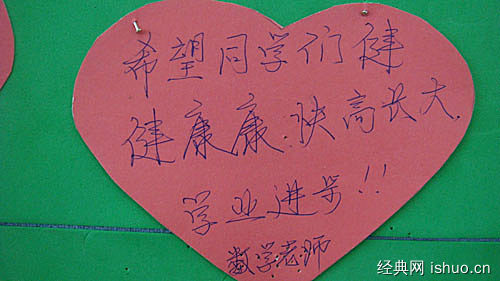 希望同学们健
健康康.快高长大.
学业进步!!
数学老师
经典网 ishuo.cn